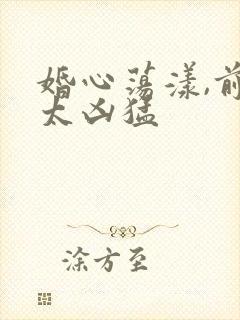 婚心荡漾,前
太凶猛
涂方至